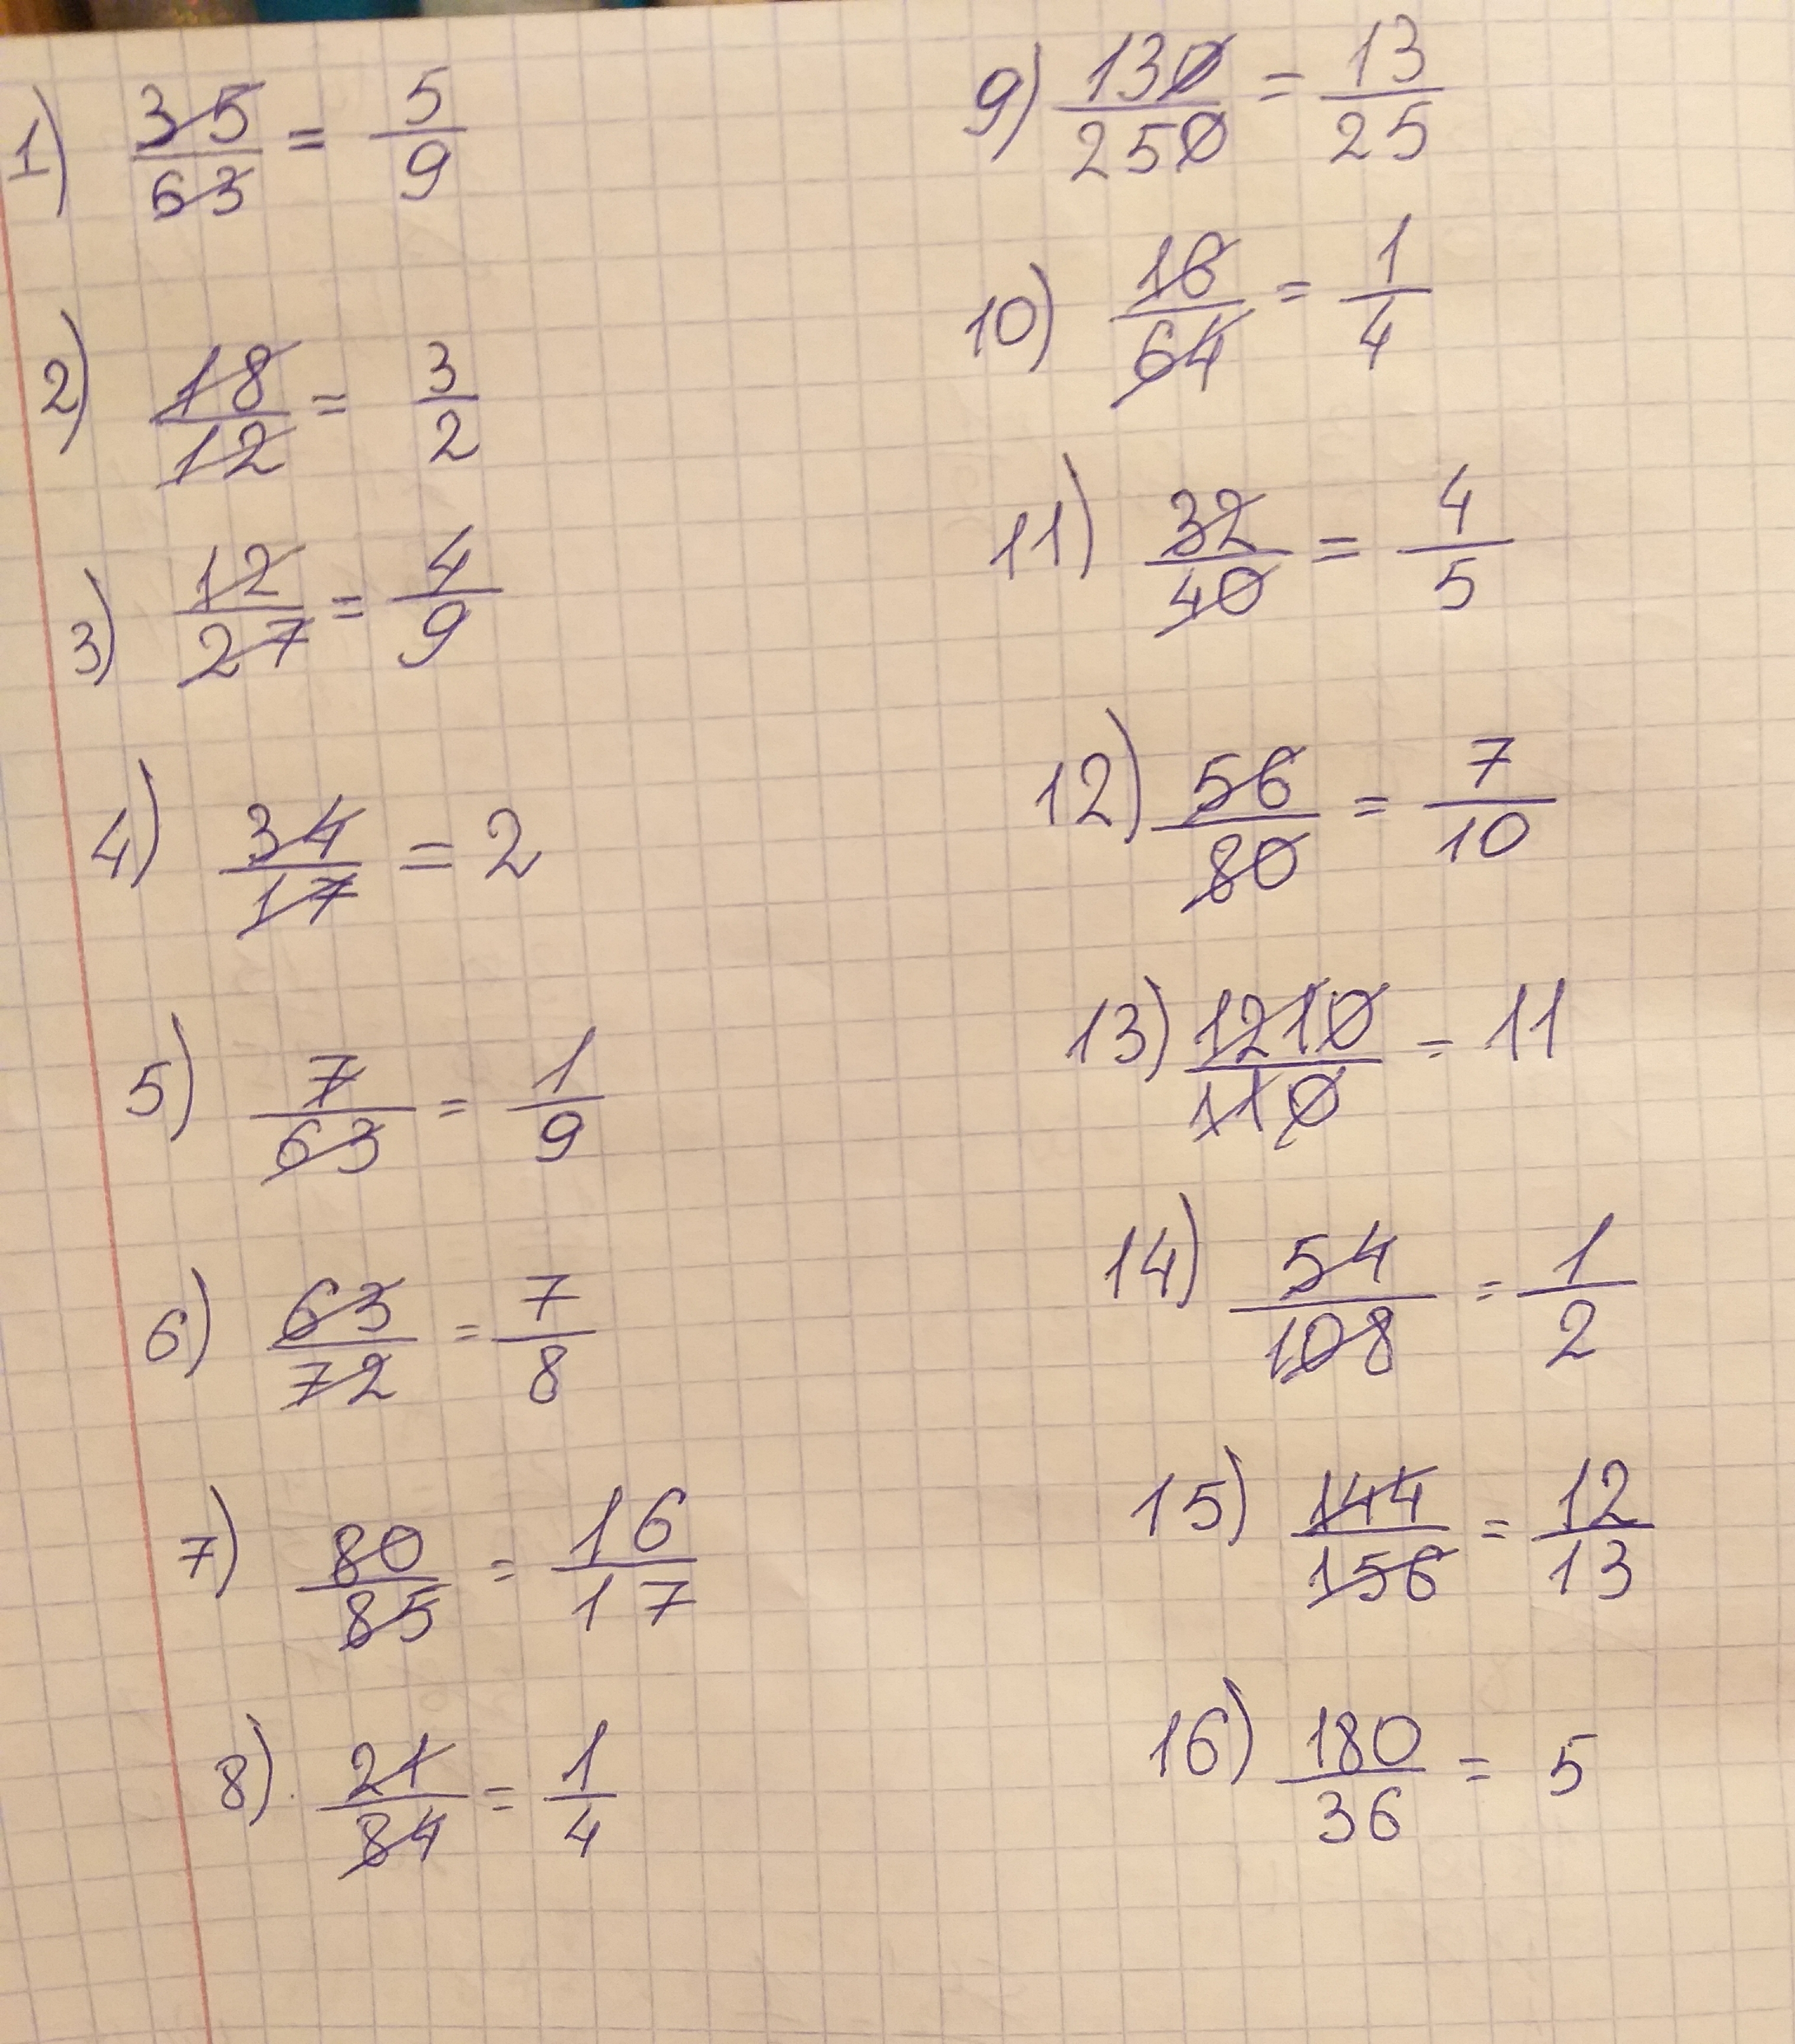 1) 35/63 = 5/9
2) 18/12 = 3/2
3) 12/27 = 4/9
4) 34/17 = 2
5) 7/63 = 1/9
6) 63/72 = 7/8
7) 80/85 = 16/17
8) 21/84 = 1/4
9) 130/250 = 13/25
10) 16/64 = 1/4
11) 32/40 = 4/5
12) 56/80 = 7/10
13) 1210/110 = 11
14) 54/108 = 1/2
15) 144/156 = 12/13
16) 180/36 = 5